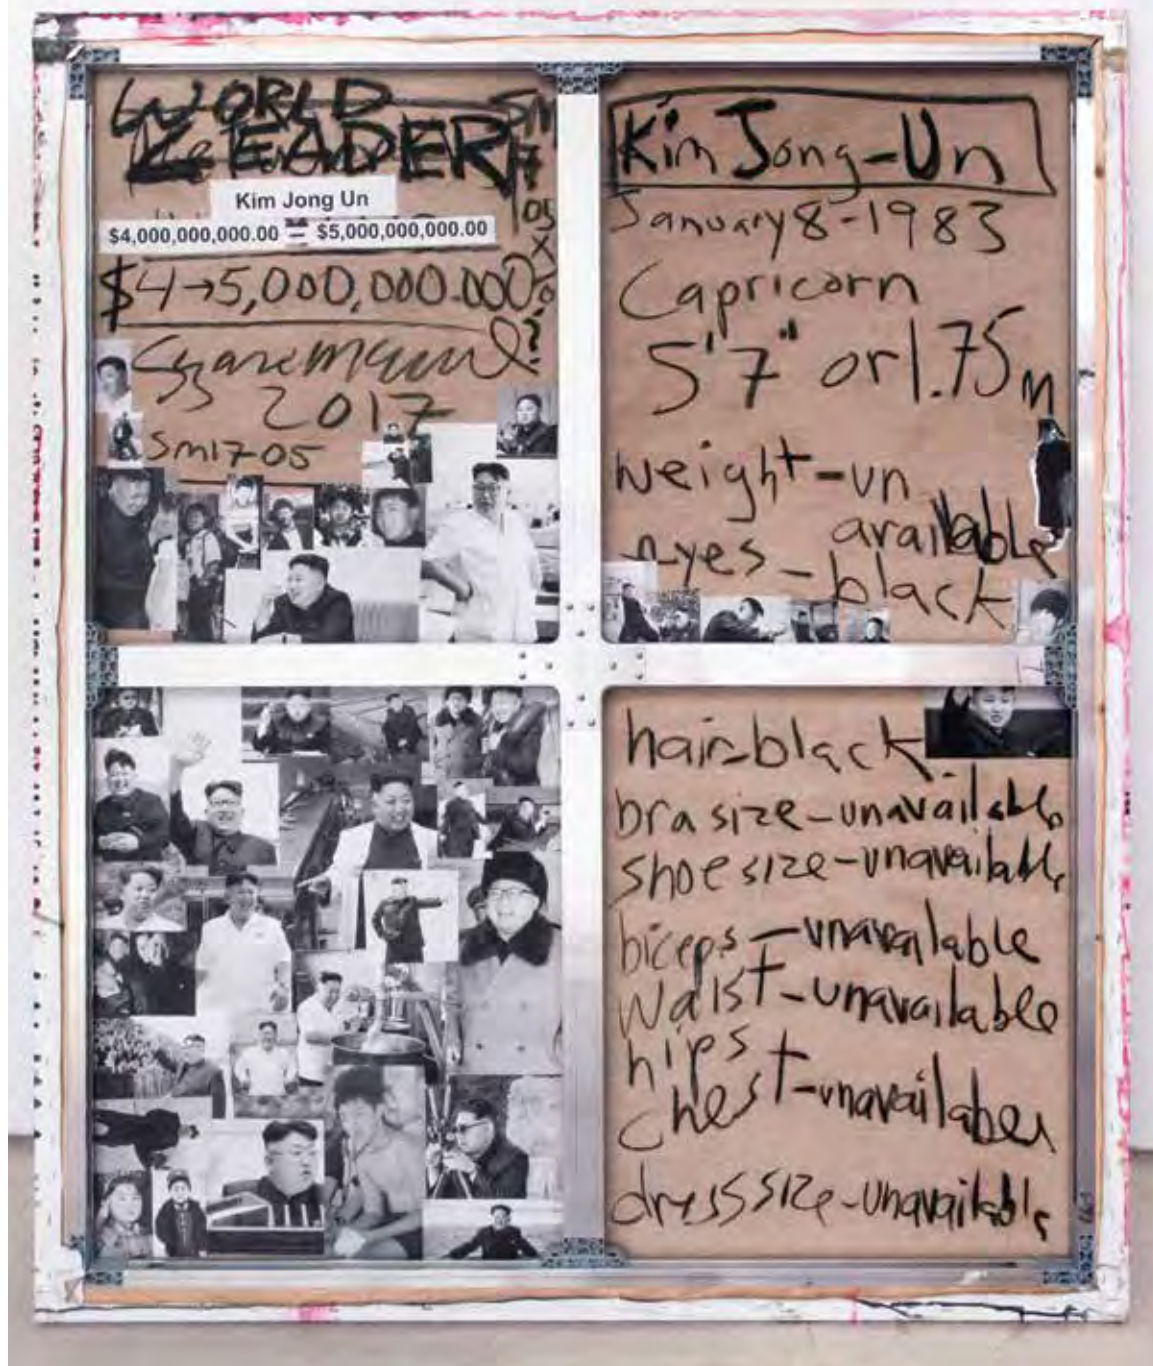 WORLD
LEADER
Kim Jong Un
$4,000,000,000.00 – $5,000,000,000.00
$4→5,000,000.000
?
2017
Sm17-05
Kim Jong-Un
January 8-1983
Capricorn
5'7" or 1.75m
weight-un
available
black
hair-black
bra size-unavailable
shoe size-unavailable
biceps-unavailable
waist-unavailable
hips
chest-unavailable
dress size-unavailable